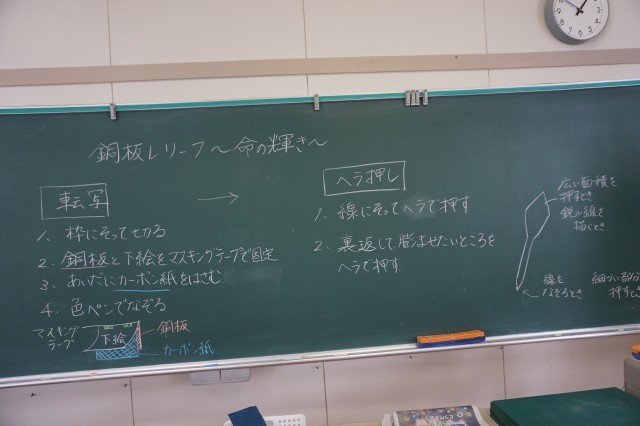 銅板レリーフ〜命の輝き〜
転写
→
ヘラ押し
1. 枠にそって切る
2. 銅板と下絵をマスキングテープで固定
3. あいだにカーボン紙をはさむ
4. 色ペンでなぞる
マスキングテープ
下絵
銅板
カーボン紙
1. 線にそってヘラで押す
2. 裏返して膨ませたいところを
ヘラで押す
広い面積を
押すとき
鋭い線を
描くとき
線を
なぞるとき
細かい部分
押すとき